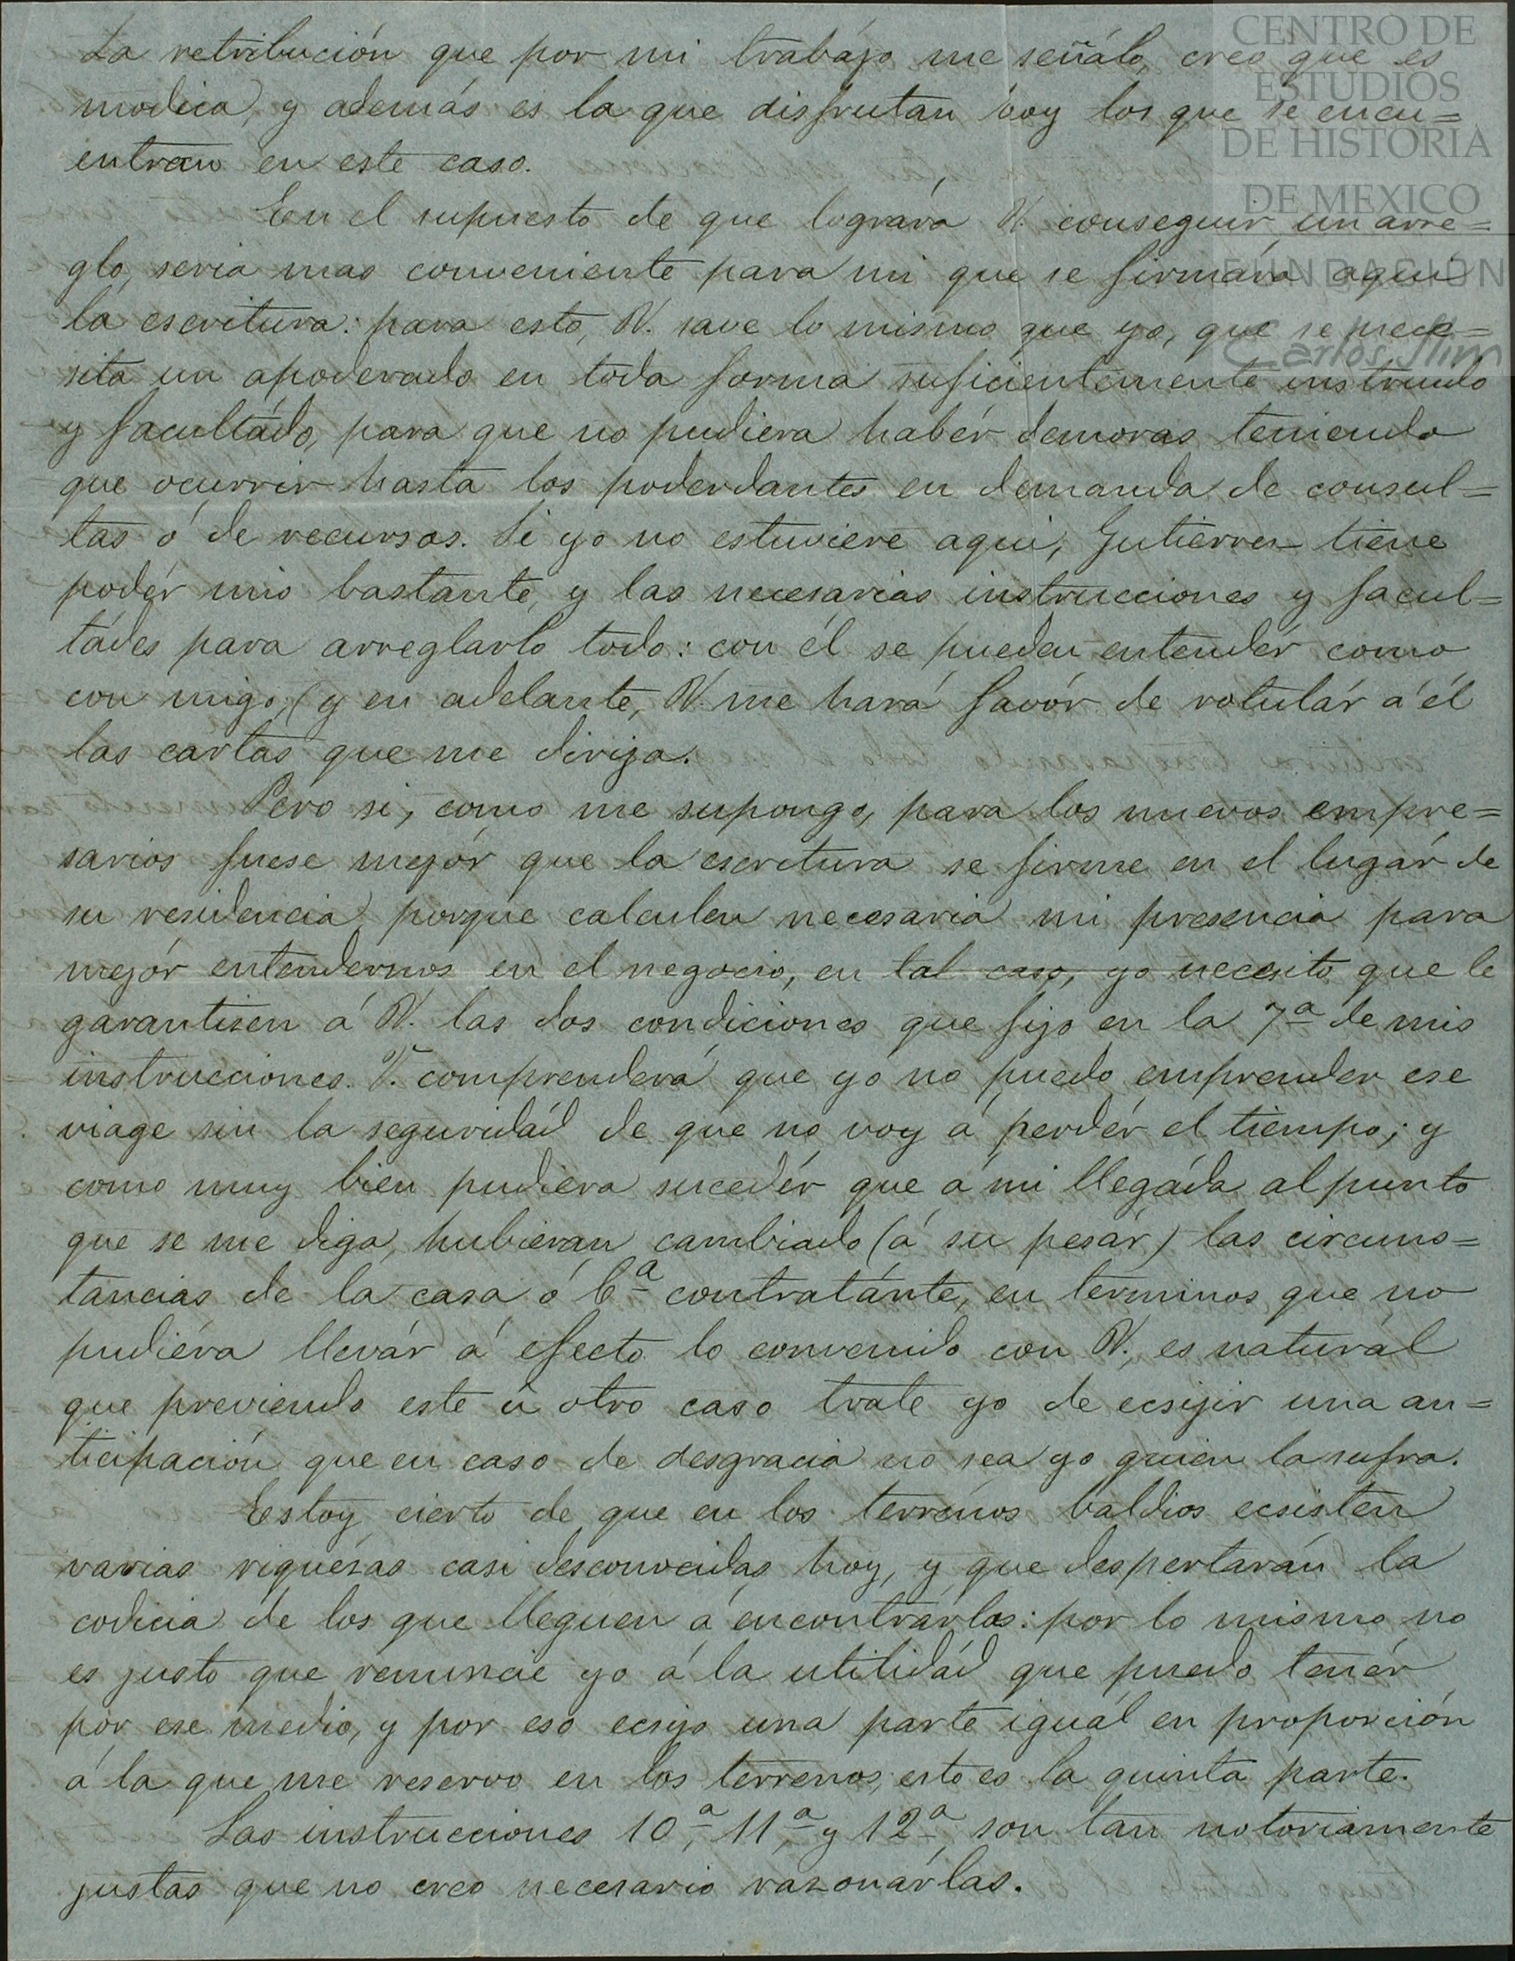 CENTRO DE
ESTUDIOS
DE HISTORIA
DE MEXICO
FUNDACIÓN
Carlos Slim
La retribución que por mi trabájo me señálo, creo que es
modica, y además es la que disfrutan hoy los que se encu=
entran en este caso.
En el supuesto de que lográra V. conseguir un arre=
glo, seria mas conveniente para mi que se firmára aqui
la escritura: para esto, V. save lo mismo que yo, que se nece=
sita un apoderado en toda forma suficientemente instruido
y facultádo, para que no pudiera habér demoras teniendo
que ocurrir hasta los poderdantes en demanda de consul=
tas ó de recursos. Si yo no estuviere aqui, Gutierrez tiene
podér mio bastante, y las necesarias instrucciones y facul=
tádes para arreglarlo todo: con él se pueden entender como
con migo, (y en adelante, V. me hará favór de rotulár á él
las cartas que me dirija.
Pero si, como me supongo, para los nuevos empre=
sarios fuese mejór que la escritura se firme en el lugár de
su residencia porque calculen necesaria mi presencia para
mejór entendernos en el negocio, en tal caso, yo necesito que le
garantisen á V. las dos condiciones que fijo en la 7ª de mis
instrucciones. V. comprenderá que yo no puedo emprender ese
viage sin la seguridád de que no voy á perdér el tiempo; y
como muy bien pudiera sucedér que á mi llegáda al punto
que se me diga, hubieran cambiado (á su pesár) las circuns=
tancias de la casa ó Cª contratánte, en terminos que no
pudiéra llevár á efecto lo convenido con V., es naturál
que previendo este ú otro caso trate yo de ecsijir una an=
ticipación que en caso de desgracia no sea yo quien la sufra.
Estoy cierto de que en los terrenos baldios ecsisten
varias riquésas casi desconocidas hoy, y que despertarán la
codicia de los que lleguen á encontrárlas: por lo mismo no
es justo que renuncie yo á la utilidád que puedo tenér
por ese medio, y por eso ecsijo una parte iguál en proporción
á la que me reservo en los terrenos, esto es la quinta parte.
Las instrucciones 10ª, 11ª y 12ª, son tan notoriamente
justas que no creo necesario razonárlas.